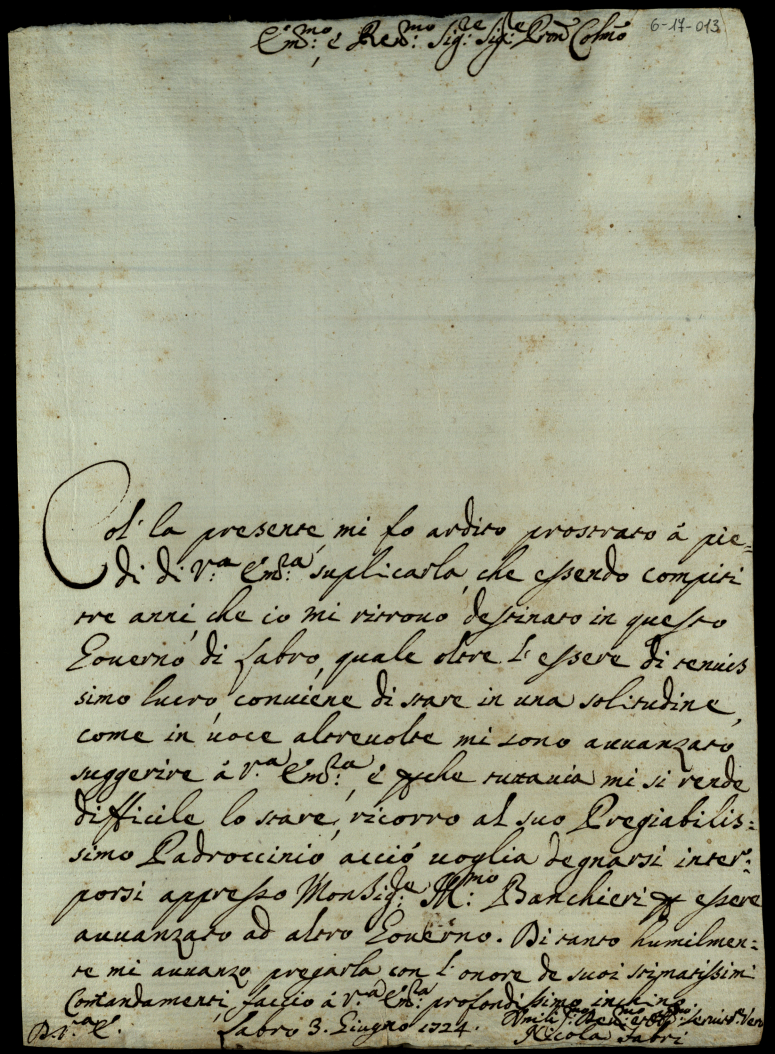 6-17-013
E.mo e Re.mo Sig.re Sig.re Pron Colmo
Col' la presente, mi fo ardito prostrato à pie=
di di V.ra Em.za suplicarla, che essendo compiti
tre anni, che io mi ritrovo destinato in questo
Governo di fabro, quale oltre l'essere di tenuis
simo lucro, conviene di stare in una solitudine,
come in voce altrevolte mi sono avvanzato
suggerire à V.ra Em.za, e perche tuttavia mi si rende
difficile lo stare, ricorro al suo Pregiabilis=
simo Padroccinio, acciò voglia degnarsi inter=
porsi appresso Monsig.re Ill.mo Banchieri per essere
avvanzato ad altro Governo. Di tanto humilmen=
te mi avvanzo pregarla con l'onore de suoi stimatissimi
Comandamenti, faccio à V.ra Em.za profondissimo inchino
D. V.ra E. fabro 3. Giugno 1724.
Nicola Fabri